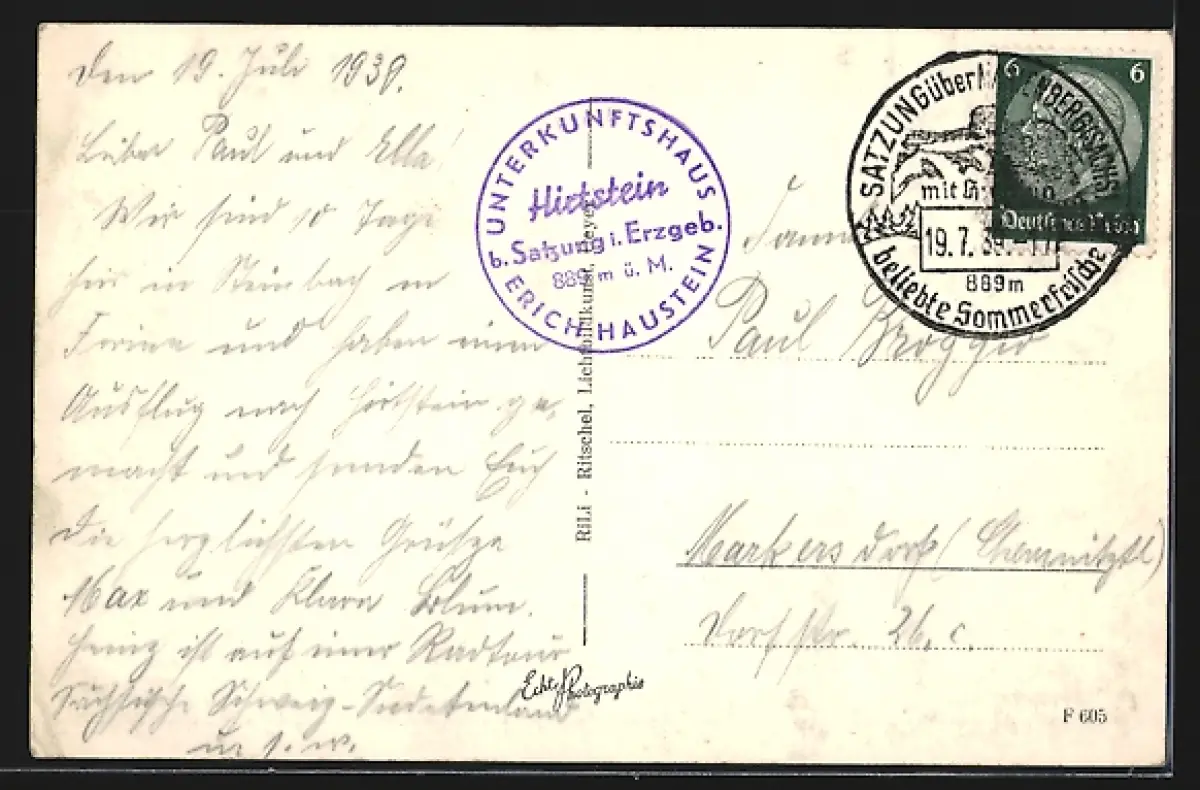 Den 19. Juli 1939.
Lieber Paul und Ella!
Wir sind 10 Tage
hier in Steinbach in
Ferien und haben einen
Ausflug nach Hirtstein ge-
macht und senden Euch
die herzlichsten Grüße
Max und Klara Blum.
Heinz ist auf einer Radtour
Sächsische Schweiz-Sudetenland
u. s. w.
UNTERKUNFTSHAUS
Hirtstein
b. Satzung i. Erzgeb.
889 m ü. M.
ERICH HAUSTEIN
RiLi - Ritschel, Lichtbildkunst,
Echte Photographie
SATZUNG über MARIENBERG SACHS
mit
19.7.39.-17
889 m
beliebte Sommerfrische
6 6
Deutsches Reich
Paul Kroggio
Markersdorf (Chemnitztl)
Dorfstr. 26.c.
F 605